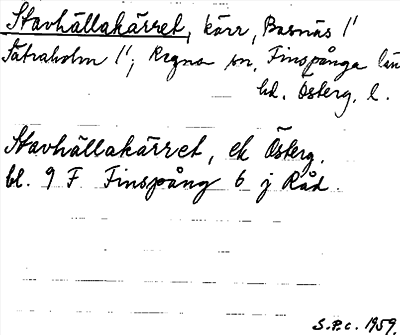 Stavhällakärret, kärr, Basnäs 1/1
Sätraholm 1/1, Regna sn, Finspånga län
hd. Österg. l.
Stavhällakärret, ek Österg.
bl. 9 F Finspång 6 j Råd.
S.P.c. 1959.